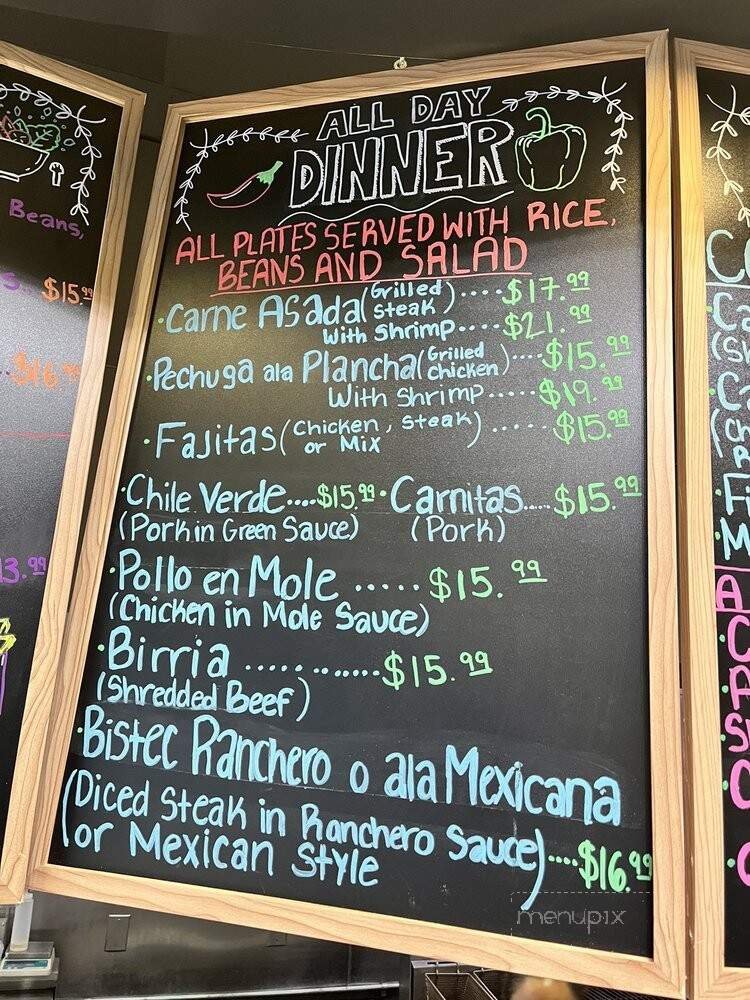 ALL DAY
DINNER
ALL PLATES SERVED WITH RICE,
BEANS AND SALAD
·Carne Asada (Grilled steak)....$17.99
With Shrimp.....$21.99
·Pechuga ala Plancha (Grilled chicken)....$15.99
With Shrimp.....$19.99
·Fajitas (Chicken, steak or Mix).....$15.99
·Chile Verde....$15.99 ·Carnitas.....$15.99
(Pork in Green Sauce) (Pork)
·Pollo en Mole.....$15.99
(Chicken in Mole Sauce)
·Birria............$15.99
(Shredded Beef)
·Bistec Ranchero o ala Mexicana
(Diced Steak in Ranchero Sauce)....$16.99
(or Mexican Style
Beans,
$15.99
$16.99
menupix